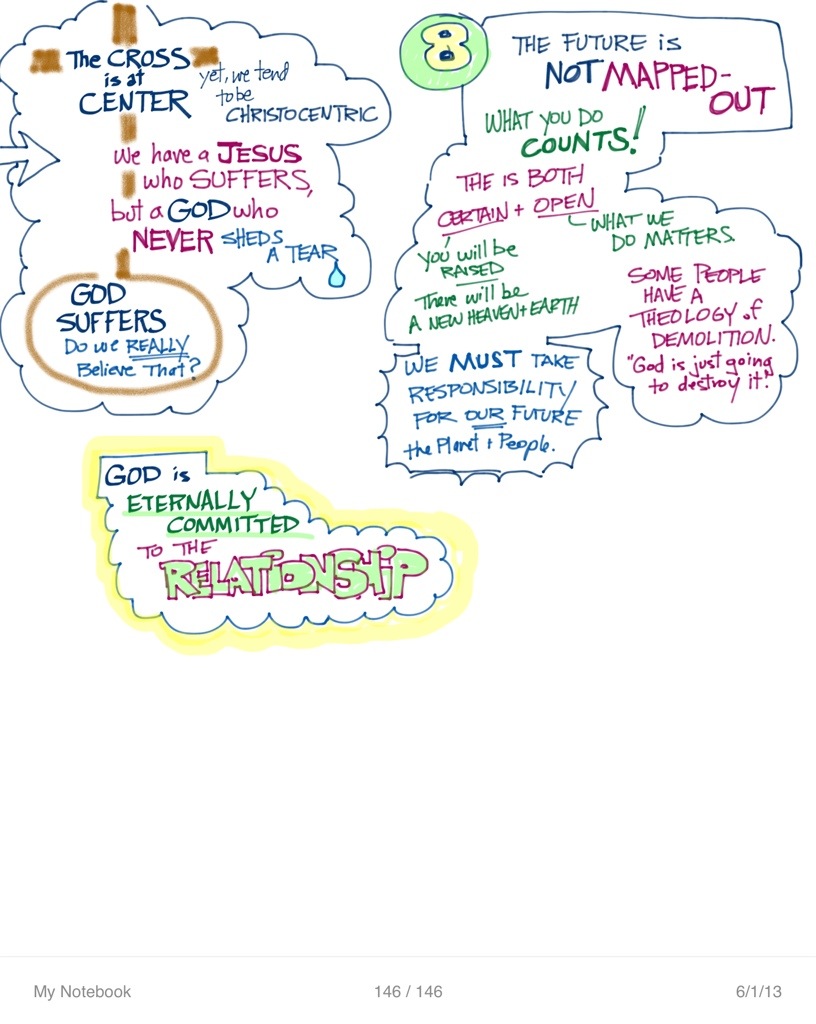 The CROSS
is at
CENTER
yet, we tend
to be
CHRISTOCENTRIC
We have a JESUS
who SUFFERS,
but a GOD who
NEVER SHEDS
A TEAR
GOD
SUFFERS
Do we REALLY
Believe That?
8
THE FUTURE is
NOT MAPPED-
OUT
WHAT YOU DO
COUNTS!
THE IS BOTH
CERTAIN + OPEN
WHAT WE
DO MATTERS.
you will be
RAISED
There will be
A NEW HEAVEN + EARTH
SOME PEOPLE
HAVE A
THEOLOGY of
DEMOLITION.
"God is just going
to destroy it!"
WE MUST TAKE
RESPONSIBILITY
FOR OUR FUTURE
the Planet + People.
GOD is
ETERNALLY
COMMITTED
TO THE
RELATIONSHIP
My Notebook
146 / 146
6/1/13